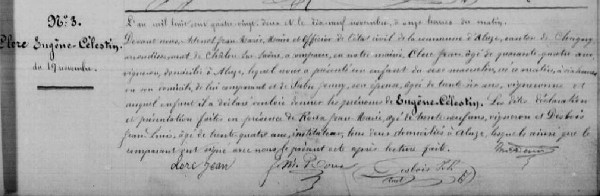 N° 3.
Clere Eugène-Célestin,
du 19 novembre.
L'an mil huit cent quatre-vingt-deux et le dix-neuf novembre, à onze heures du matin
Devant nous, Jean-Marie, Maire et Officier de l'état civil de la commune d'Aluze, canton de Chagny,
arrondissement de Châlon-sur-Saône, a comparu, en notre mairie, Clere Jean âgé de quarante-quatre ans
vigneron, domicilié à Aluze, lequel nous a présenté un enfant du sexe masculin, né
en son domicile, de lui comparant et de Jenny, son épouse, âgée de trente-six ans, vigneronne et
auquel enfant il a déclaré vouloir donner les prénoms de Eugène-Célestin. Les dites déclaration
et présentation faites en présence de Jean-Marie, âgé de trente-neuf ans, vigneron et Desbois
Jean-Louis, âgé de trente-quatre ans, instituteur, tous deux domiciliés à Aluze, lesquels ainsi que le
comparant ont signé avec nous, le présent acte après lecture faite.
Clere Jean
J. M.
Desbois